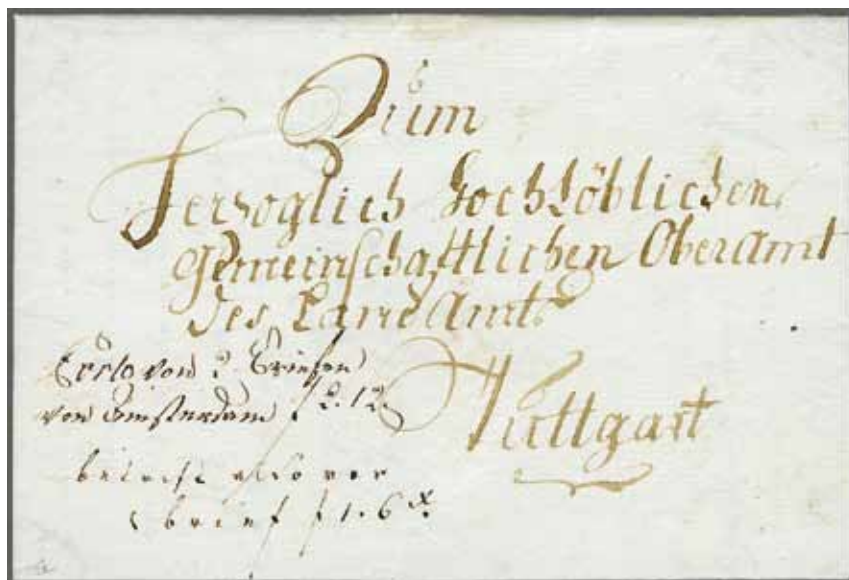 Zum
Herzoglich Hochlöblichen
gemeinschaftlichen Oberamt
des Land Amts
Stuttgart
Porto von 2 Briefen
von Amsterdam f 2. 12.
beträgt also vor
1 brief f 1. 6 x.